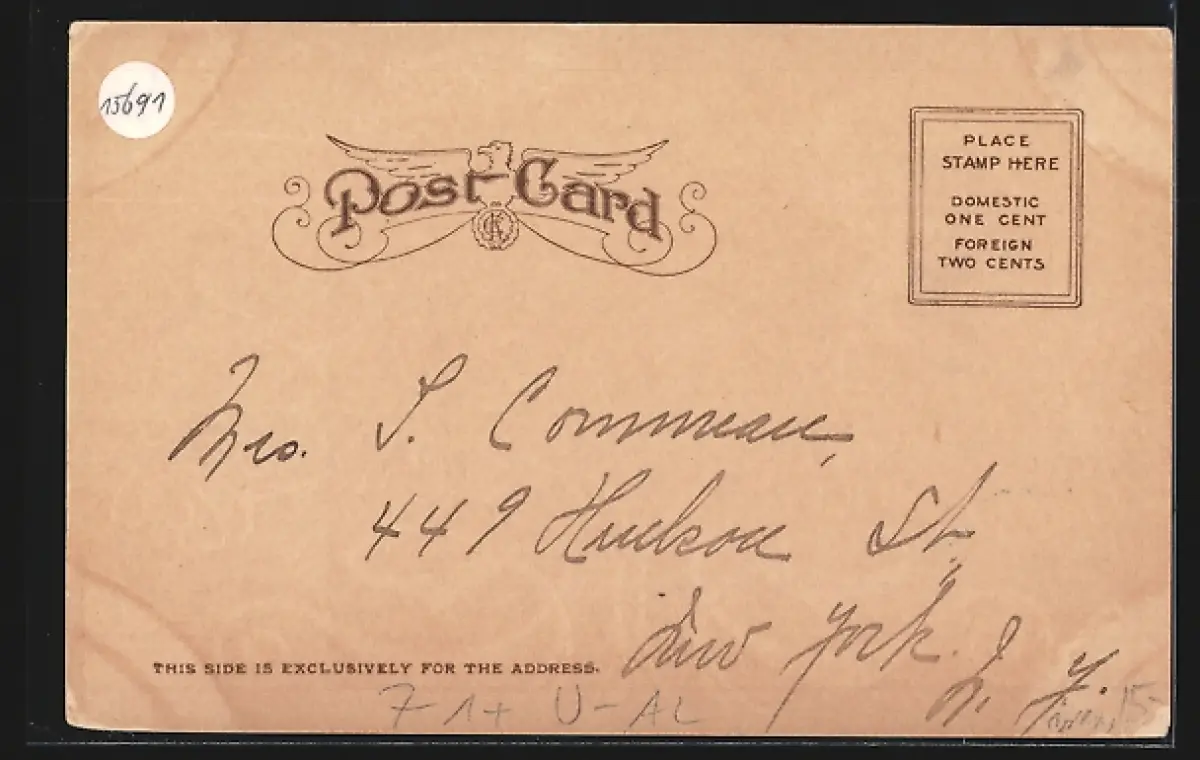 15691
Post Card
PLACE
STAMP HERE
DOMESTIC
ONE CENT
FOREIGN
TWO CENTS
Mrs. S. Commeau,
449 Hudson St.
New York.
N. Y.
THIS SIDE IS EXCLUSIVELY FOR THE ADDRESS.
7-1+ U-AL
15-